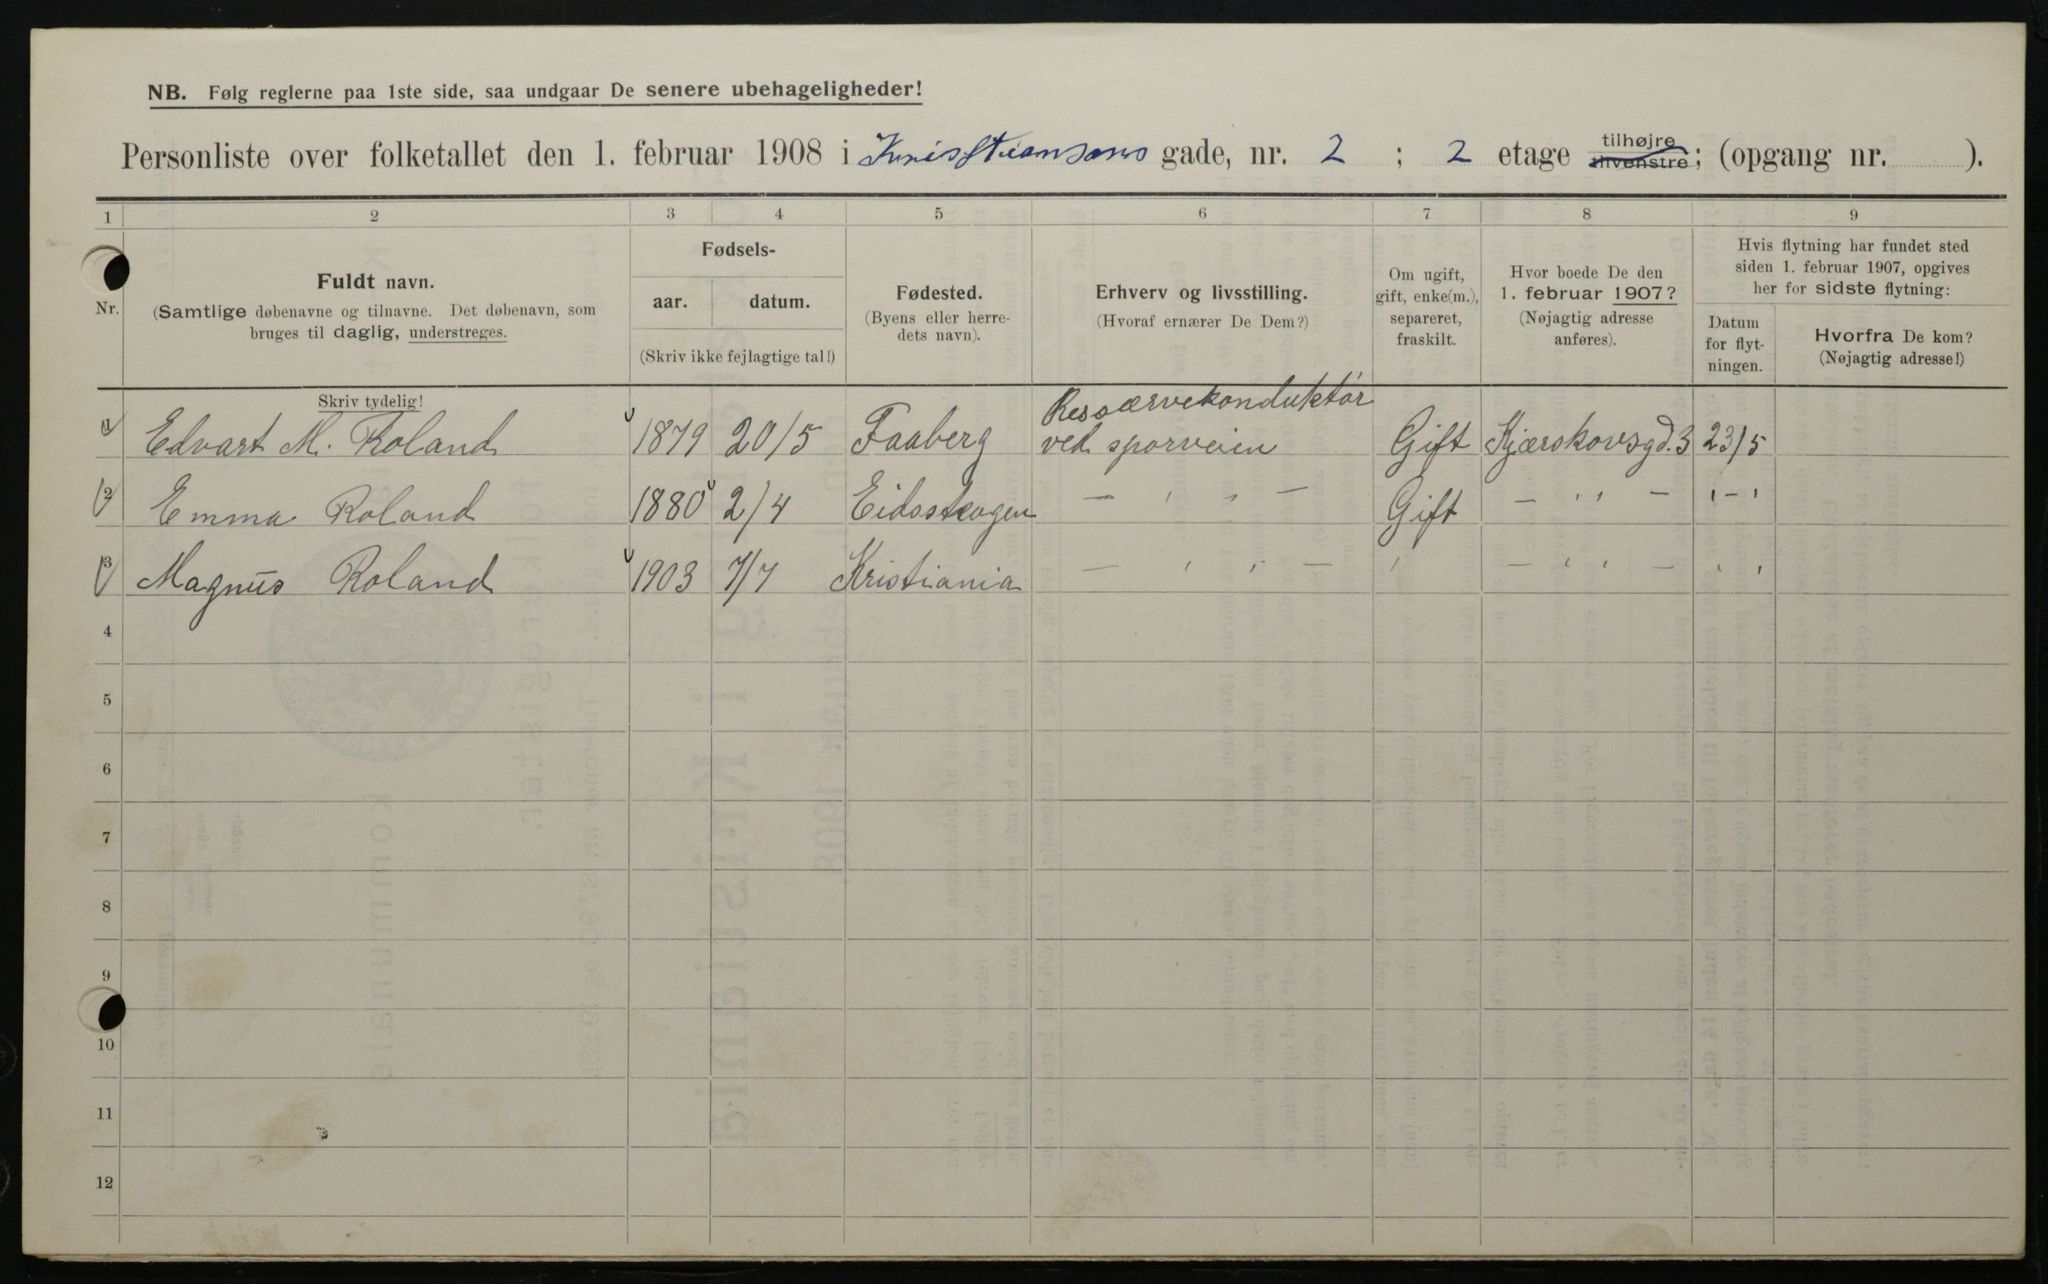 NB. Følg reglerne paa 1ste side, saa undgaar De senere ubehageligheder!
Personliste over folketallet den 1. februar 1908 i Kristiansans gade, nr. 2 ; 2 etage tilhøjre tilvenstre; (opgang nr. ).
1 2 3 4 5 6 7 8 9
Nr.
Fuldt navn.
(Samtlige døbenavne og tilnavne. Det døbenavn, som
bruges til daglig, understreges.
Skriv tydelig!
Fødsels-
aar. datum.
(Skriv ikke fejlagtige tal!)
Fødested.
(Byens eller herre-
dets navn).
Erhverv og livsstilling.
(Hvoraf ernærer De Dem?)
Om ugift,
gift, enke(m.),
separeret,
fraskilt.
Hvor boede De den
1. februar 1907?
(Nøjagtig adresse
anføres).
Hvis flytning har fundet sted
siden 1. februar 1907, opgives
her for sidste flytning:
Datum
for flyt-
ningen.
Hvorfra De kom?
(Nøjagtig adresse!)
Ressærvekonduktør
1 Edvart M. Roland 1879 20/5 Faaberg ved sporveien Gift Kjærskovsgd. 3 23/5
2 Emma Roland 1880 2/4 Eidsskogen — " — Gift — " — " — "
3 Magnus Roland 1903 7/7 Kristiania — " — " — " — "
4
5
6
7
8
9
10
11
12